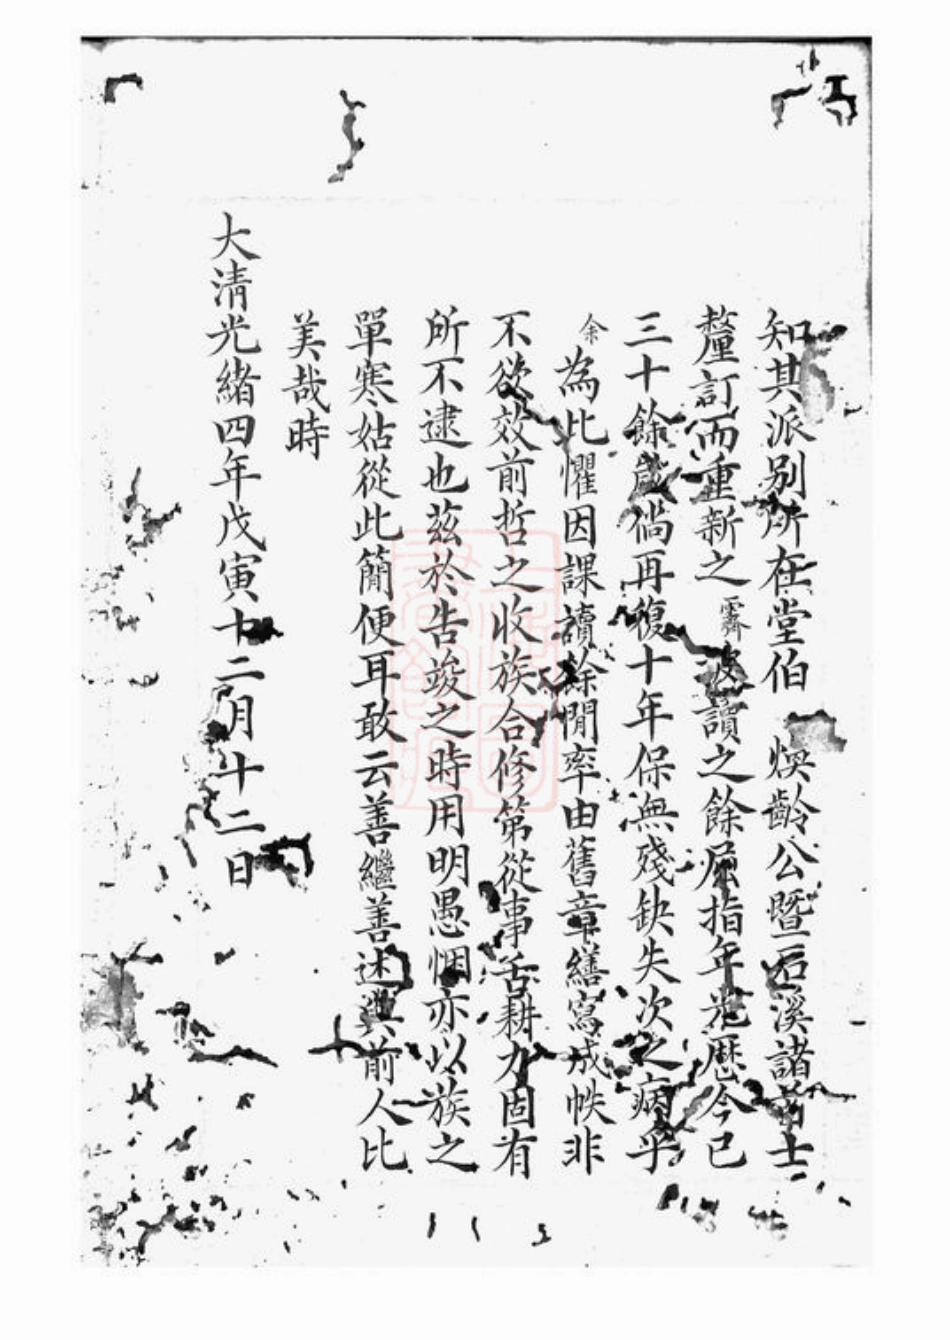 知其派别所在堂伯 煥齡公暨石溪諸前士
釐訂而重新之霽波讀之餘屈指年光歷今已
三十餘歲倘再復十年保無殘缺失次之病乎
余為此懼因課讀餘閒率由舊章繕寫成帙非
不欲效前哲之收族合修第從事舌耕力固有
所不逮也茲於告竣之時用明愚悃亦以族之
單寒姑從此簡便耳敢云善繼善述與前人比
美哉時
大清光緒四年戊寅十二月十二日